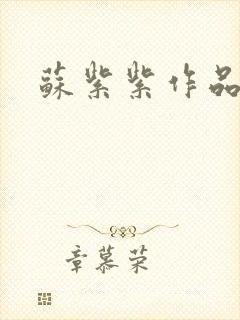 蘇紫紫作品
章慕荣